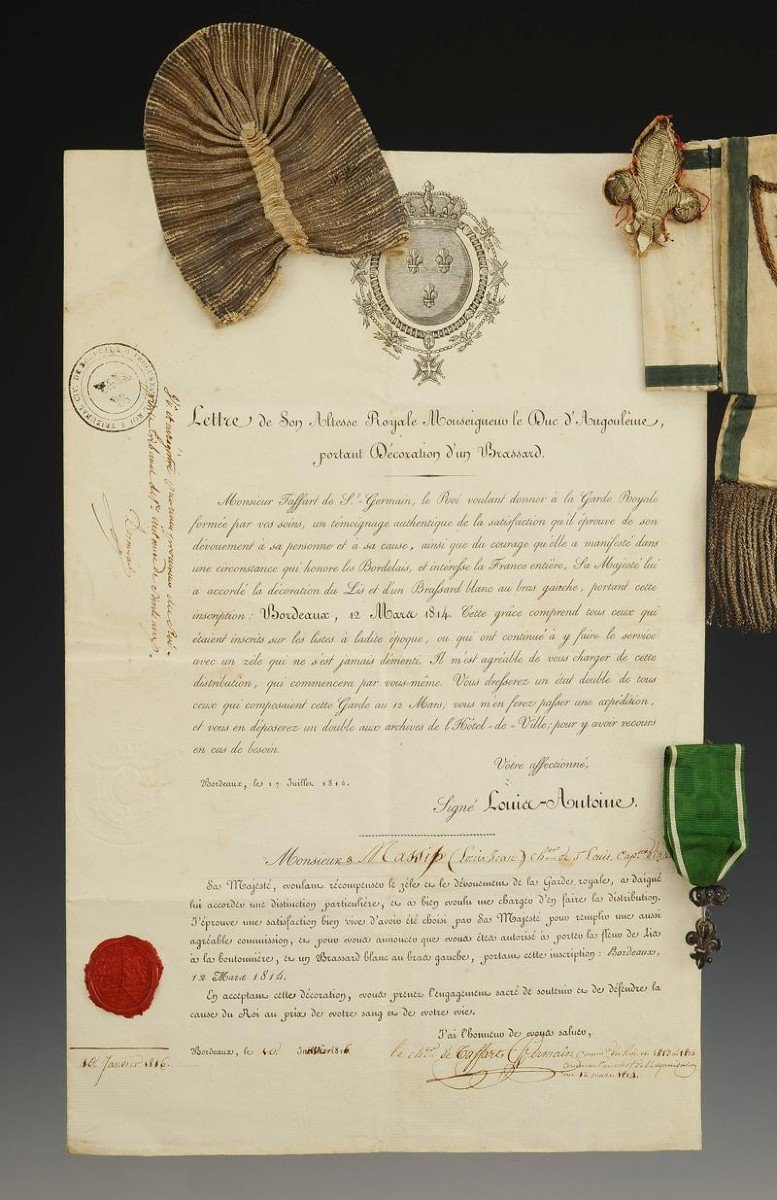 Lettre de Son Altesse Royale Monseigneur le Duc d'Angoulême,
portant Décoration d'un Brassard.
Monsieur Taffart de S.t-Germain, le Roi voulant donner à la Garde Royale
formée par vos soins, un témoignage authentique de la satisfaction qu'il éprouve de son
dévouement à sa personne et à sa cause, ainsi que du courage qu'elle a manifesté dans
une circonstance qui honore les Bordelais, et intéresse la France entière, Sa Majesté lui
a accordé la décoration du Lis et d'un Brassard blanc au bras gauche, portant cette
inscription: Bordeaux, 12 Mars 1814. Cette grâce comprend tous ceux qui
étaient inscrits sur les listes à ladite époque, ou qui ont continué à y faire le service
avec un zèle qui ne s'est jamais démenti. Il m'est agréable de vous charger de cette
distribution, qui commencera par vous-même. Vous dresserez un état double de tous
ceux qui composaient cette Garde au 12 Mars, vous m'en ferez passer une expédition,
et vous en déposerez un double aux archives de l'Hôtel-de-Ville, pour y avoir recours
en cas de besoin.
Votre affectionné,
Bordeaux, le 17 Juillet 1814.
Signé Louis-Antoine.
Monsieur Massip (Louis Jean) ch.er de S.t Louis,
Sa Majesté, voulant récompenser le zèle et le dévouement de la Garde royale, a daigné
lui accorder une distinction particulière, et a bien voulu me charger d'en faire la distribution.
J'éprouve une satisfaction bien vive d'avoir été choisi par Sa Majesté pour remplir une aussi
agréable commission, et pour vous annoncer que vous êtes autorisé à porter la fleur de Lis
à la boutonnière, et un Brassard blanc au bras gauche, portant cette inscription: Bordeaux,
12 Mars 1814.
En acceptant cette décoration, vous prenez l'engagement sacré de soutenir et de défendre la
cause du Roi au prix de votre sang et de votre vie.
J'ai l'honneur de vous saluer,
Bordeaux, le 10 Janvier 1816
le ch.er de Taffart S.t Germain
au 12 mars 1814.
10 Janvier 1816.